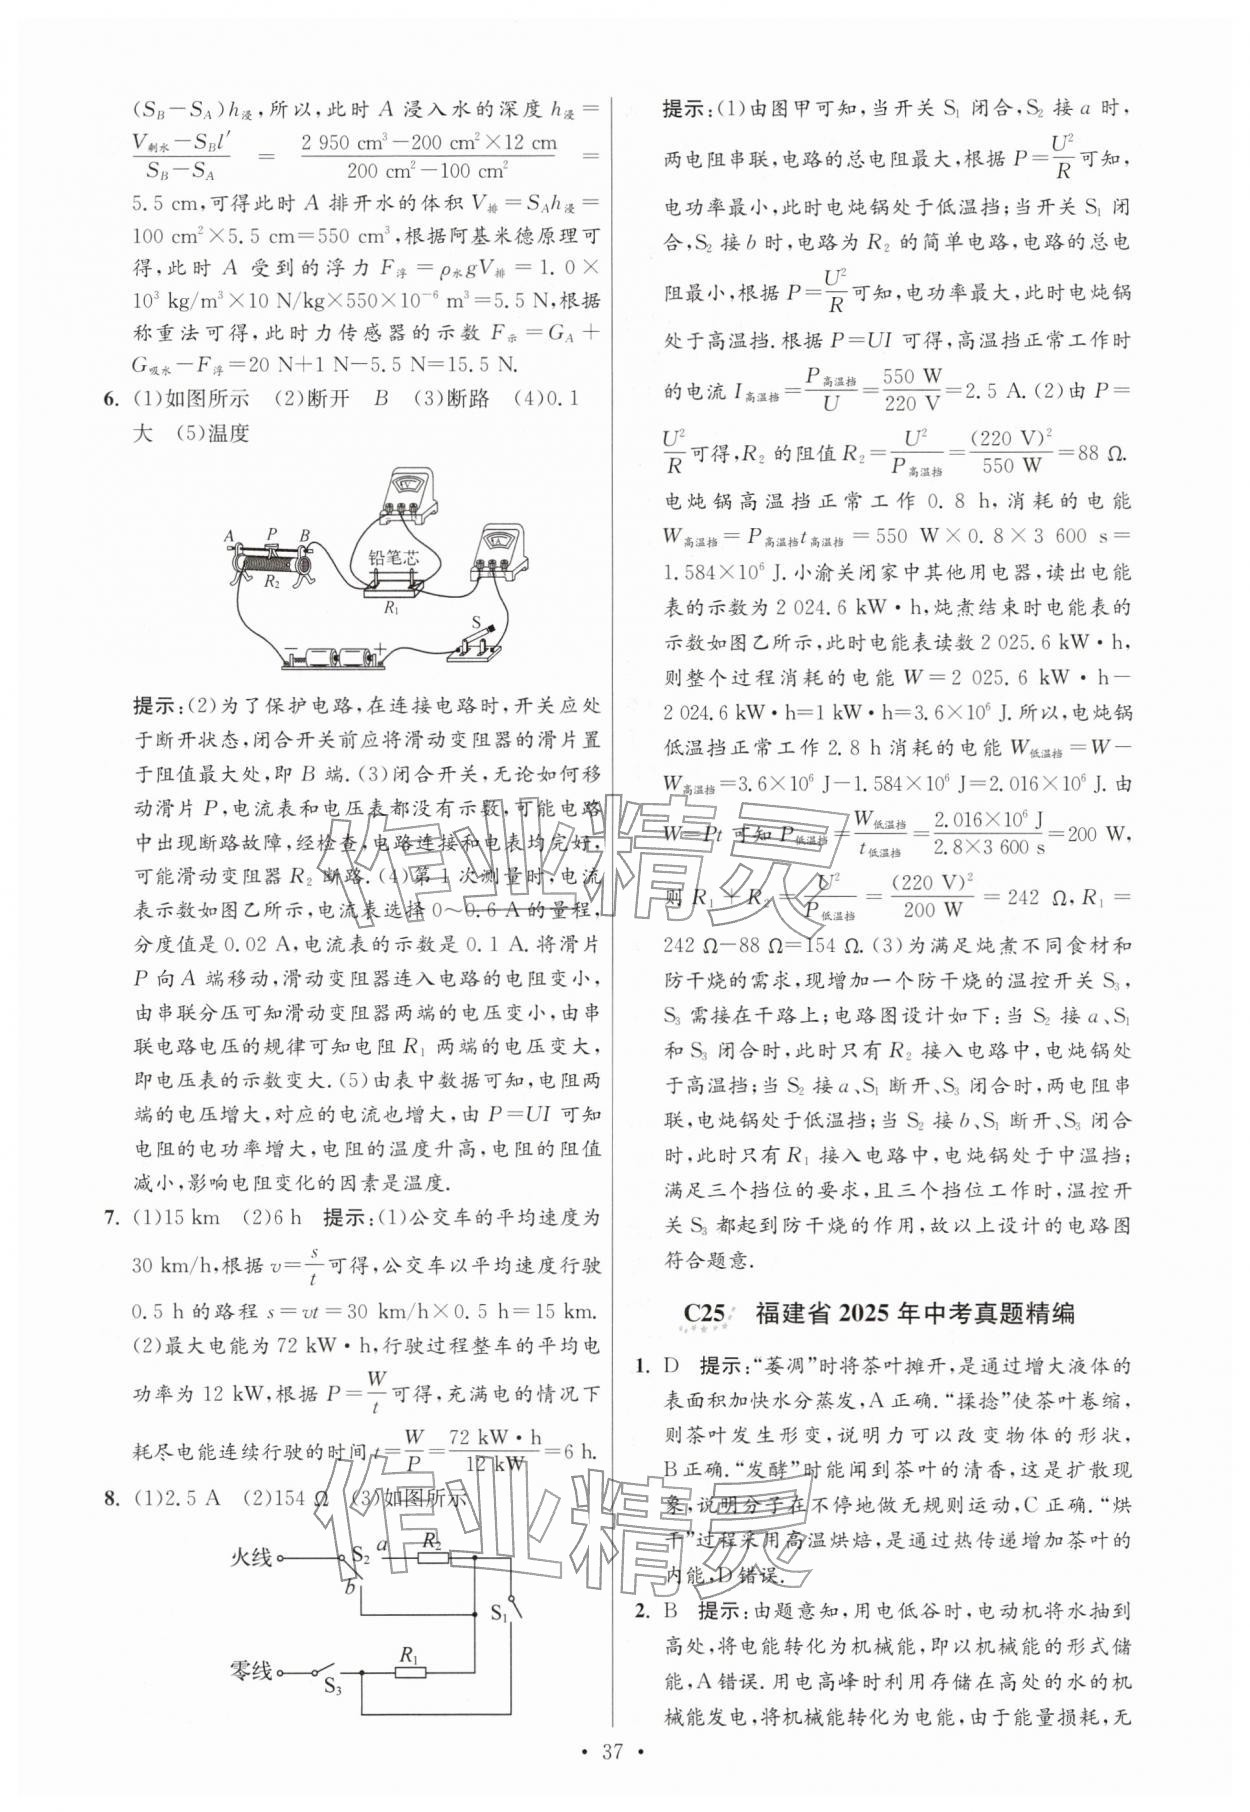 (S_B−S_A)h_浸,所以,此时 A 浸入水的深度 h_浸=
(V_剩水−S_Bl′)/(S_B−S_A) = (2 950 cm³−200 cm²×12 cm)/(200 cm²−100 cm²) =
5.5 cm,可得此时 A 排开水的体积 V_排=S_Ah_浸=
100 cm²×5.5 cm=550 cm³,根据阿基米德原理可
得,此时 A 受到的浮力 F_浮=ρ_水gV_排=1.0×
10³ kg/m³×10 N/kg×550×10⁻⁶ m³=5.5 N,根据
称重法可得,此时力传感器的示数 F_示=G_A+
G_吸水−F_浮=20 N+1 N−5.5 N=15.5 N.
6. (1)如图所示 (2)断开 B (3)断路 (4)0.1
大 (5)温度
V
A P B
铅笔芯
A
R₂
R₁
S
− +
提示:(2)为了保护电路,在连接电路时,开关应处
于断开状态,闭合开关前应将滑动变阻器的滑片置
于阻值最大处,即 B 端.(3)闭合开关,无论如何移
动滑片 P,电流表和电压表都没有示数,可能电路
中出现断路故障,经检查,电路连接和电表均完好,
可能滑动变阻器 R₂ 断路.(4)第 1 次测量时,电流
表示数如图乙所示,电流表选择 0~0.6 A 的量程,
分度值是 0.02 A,电流表的示数是 0.1 A.将滑片
P 向 A 端移动,滑动变阻器连入电路的电阻变小,
由串联分压可知滑动变阻器两端的电压变小,由串
联电路电压的规律可知电阻 R₁ 两端的电压变大,
即电压表的示数变大.(5)由表中数据可知,电阻两
端的电压增大,对应的电流也增大,由 P=UI 可知
电阻的电功率增大,电阻的温度升高,电阻的阻值
减小,影响电阻变化的因素是温度.
7. (1)15 km (2)6 h 提示:(1)公交车的平均速度为
30 km/h,根据 v=s/t 可得,公交车以平均速度行驶
0.5 h 的路程 s=vt=30 km/h×0.5 h=15 km.
(2)最大电能为 72 kW·h,行驶过程整车的平均电
功率为 12 kW,根据 P=W/t 可得,充满电的情况下
耗尽电能连续行驶的时间 t=W/P=(72 kW·h)/(12 kW)=6 h.
8. (1)2.5 A (2)154 Ω (3)如图所示
火线 S₂ a R₂
b
S₁
零线 S₃ R₁
提示:(1)由图甲可知,当开关 S₁ 闭合,S₂ 接 a 时,
两电阻串联,电路的总电阻最大,根据 P=U²/R 可知,
电功率最小,此时电炖锅处于低温挡;当开关 S₁ 闭
合,S₂ 接 b 时,电路为 R₂ 的简单电路,电路的总电
阻最小,根据 P=U²/R 可知,电功率最大,此时电炖锅
处于高温挡.根据 P=UI 可得,高温挡正常工作时
的电流 I_高温挡=P_高温挡/U=550 W/220 V=2.5 A.(2)由 P=
U²/R 可得,R₂ 的阻值 R₂=U²/P_高温挡=(220 V)²/550 W=88 Ω.
电炖锅高温挡正常工作 0.8 h,消耗的电能
W_高温挡=P_高温挡t_高温挡=550 W×0.8×3 600 s=
1.584×10⁶ J.小渝关闭家中其他用电器,读出电能
表的示数为 2 024.6 kW·h,炖煮结束时电能表的
示数如图乙所示,此时电能表读数 2 025.6 kW·h,
则整个过程消耗的电能 W=2 025.6 kW·h−
2 024.6 kW·h=1 kW·h=3.6×10⁶ J.所以,电炖锅
低温挡正常工作 2.8 h 消耗的电能 W_低温挡=W−
W_高温挡=3.6×10⁶ J−1.584×10⁶ J=2.016×10⁶ J.由
W=Pt 可知 P_低温挡=W_低温挡/t_低温挡=(2.016×10⁶ J)/(2.8×3 600 s)=200 W,
则 R₁+R₂=U²/P_低温挡=(220 V)²/200 W=242 Ω,R₁=
242 Ω−88 Ω=154 Ω.(3)为满足炖煮不同食材和
防干烧的需求,现增加一个防干烧的温控开关 S₃,
S₃ 需接在干路上;电路图设计如下:当 S₂ 接 a、S₁
和 S₃ 闭合时,此时只有 R₂ 接入电路中,电炖锅处
于高温挡;当 S₂ 接 a、S₁ 断开、S₃ 闭合时,两电阻串
联,电炖锅处于低温挡;当 S₂ 接 b、S₁ 断开、S₃ 闭合
时,此时只有 R₁ 接入电路中,电炖锅处于中温挡;
满足三个挡位的要求,且三个挡位工作时,温控开
关 S₃ 都起到防干烧的作用,故以上设计的电路图
符合题意.
C25 福建省 2025 年中考真题精编
1. D 提示:“萎凋”时将茶叶摊开,是通过增大液体的
表面积加快水分蒸发,A 正确.“揉捻”使茶叶卷缩,
则茶叶发生形变,说明力可以改变物体的形状,
B 正确.“发酵”时能闻到茶叶的清香,这是扩散现
象,说明分子在不停地做无规则运动,C 正确.“烘
干”过程采用高温烘焙,是通过热传递增加茶叶的
内能,D 错误.
2. B 提示:由题意知,用电低谷时,电动机将水抽到
高处,将电能转化为机械能,即以机械能的形式储
能,A 错误.用电高峰时利用存储在高处的水的机
械能发电,将机械能转化为电能,由于能量损耗,无
· 37 ·
作业精灵
作业精灵